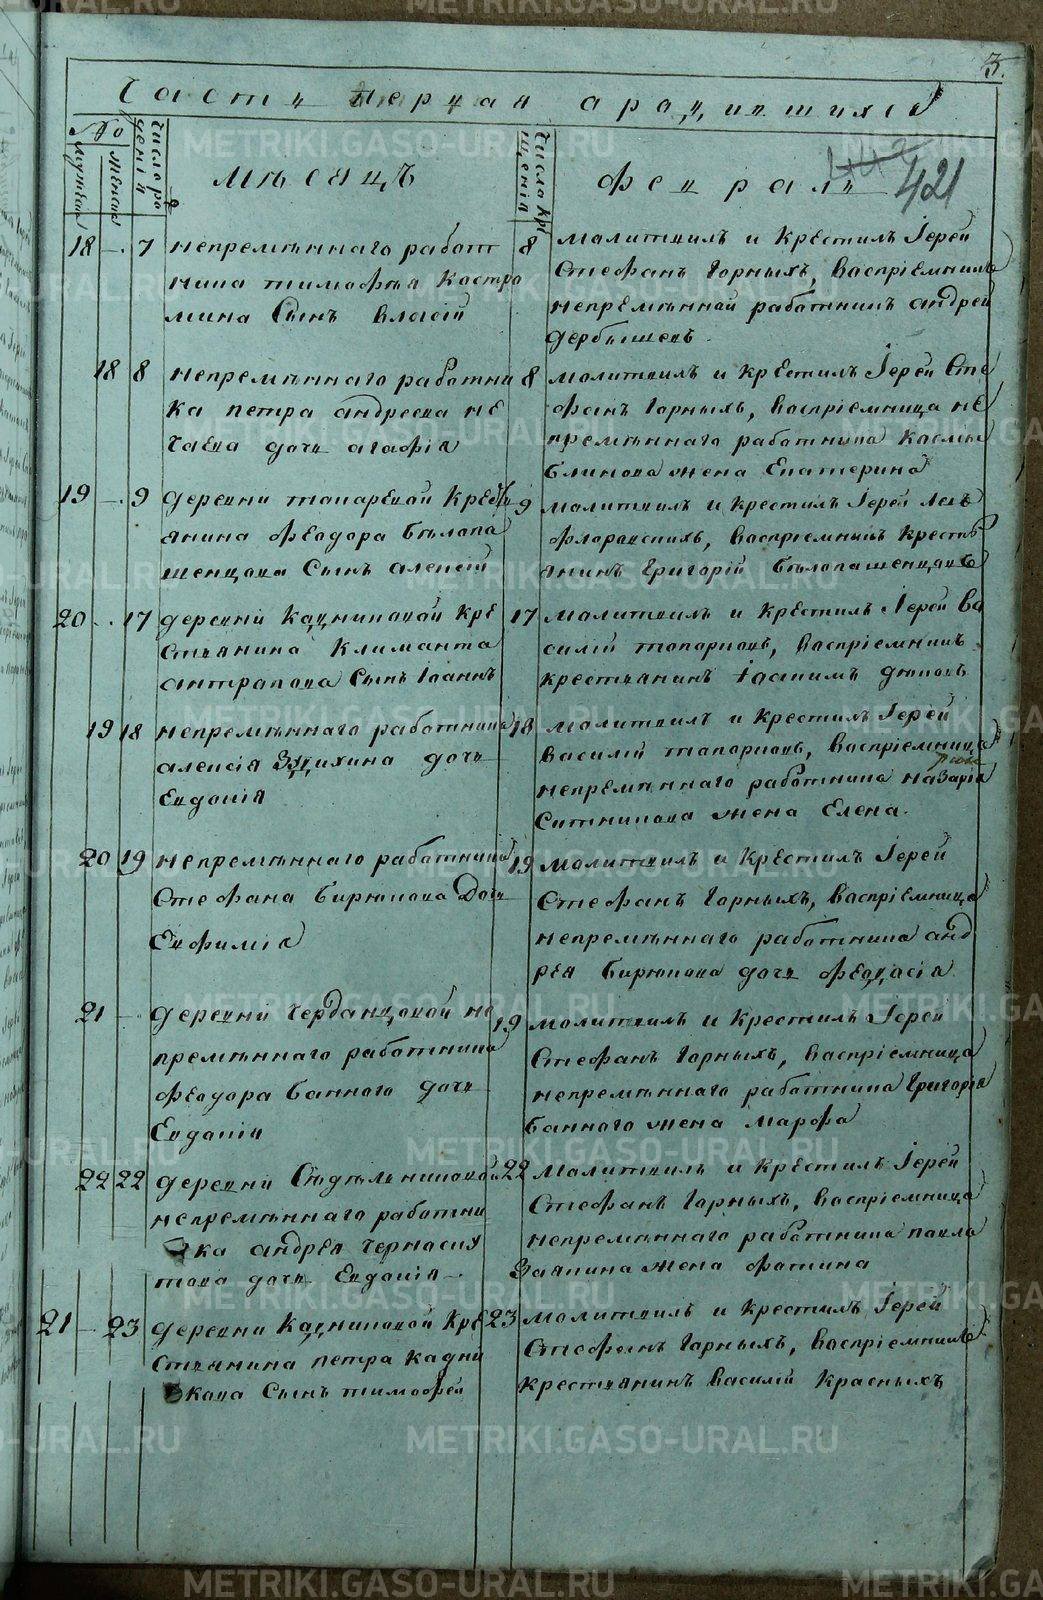 3.
Часть первая о родившихся
421
№
мужеск
женск
Число ро
ждения
Мѣсяцъ
Числа кре
щенія
Февраль
18 — 7 непремѣннаго работ
ника тимофѣя Костро
мина Сынъ власій
8 молитвилъ и крестилъ Іерей
Стефанъ Горныхъ, воспріемникъ
непремѣнной работникъ андрей
дербышевъ.
18 8 непремѣннаго работни
ка петра андреева не
чаева дочь агафія
8 молитвилъ и крестилъ Іерей Сте
фанъ Горныхъ, воспріемница не
премѣннаго работника
Блинова жена Екатерина
19 — 9 деревни токаревой Крест
янина феодора Бѣлопа
шенцова Сынъ алексій
9 молитвилъ и крестилъ Іерей Левъ
флоровскихъ, воспріемникъ крестьь
янинъ Григорій Бѣлопашенцовъ
20 — 17 деревни Кадниковой Кре
стьянина Климанта
антропова Сынъ Іоаннъ
17 молитвилъ и крестилъ Іерей Ва
силій топорковъ, воспріемникъ
крестьянинъ Іоакимъ дюковъ
19 18 непремѣннаго работника
алексія Зуихина дочь
Евдокія
18 молитвилъ и крестилъ Іерей
василій топорковъ, воспріемница
непремѣннаго работника назарія
Ситникова жена Елена.
20 19 непремѣннаго работника
Стефана Бирюкова Дочь
Евфимія
19 молитвилъ и крестилъ Іерей
Стефанъ Горныхъ, воспріемница
непремѣннаго работника анд
рея Бирюкова дочь феодосія
21 — деревни Черданцовой не
премѣннаго работника
феодора Банного дочь
Евдокія
19 молитвилъ и крестилъ Іерей
Стефанъ Горныхъ, воспріемница
непремѣннаго работника Григорія
Банного жена марфа
22 22 деревни Сѣдѣльниковой
непремѣннаго работни
ка андрея черноску
това дочь Евдокія —
22 молитвилъ и крестилъ Іерей
Стефанъ Горныхъ, воспріемница
непремѣннаго работника павла
Заякина жена фотина
21 — 23 деревни Кадниковой Кре
стьянина петра Кадни
кова Сынъ тимофей
23 молитвилъ и крестилъ Іерей
Стефанъ Горныхъ, воспріемникъ
крестьянинъ василій Красныхъ
METRIKI.GASO-URAL.RU